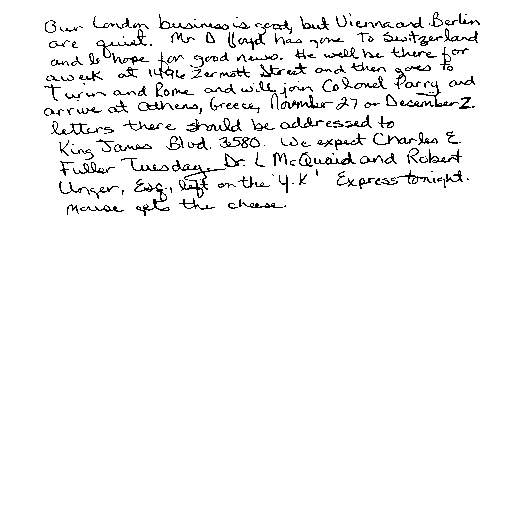 Our London business is good, but Vienna and Berlin
are quiet. Mr D Lloyd has gone To Switzerland
and Is hope for good news. He will be there for
a week at 1496 Zermott Street and then goes to
Turin and Rome and will join Colonel Parry and
arrive at Athens, Greece, November 27 or December 2.
letters there should be addressed to
King James Blvd. 3580. We expect Charles E.
Fuller Tuesday. Dr. L McQuaid and Robert
Unger, Esq., left on the 'Y.X' Express tonight.
mouse gets the cheese.